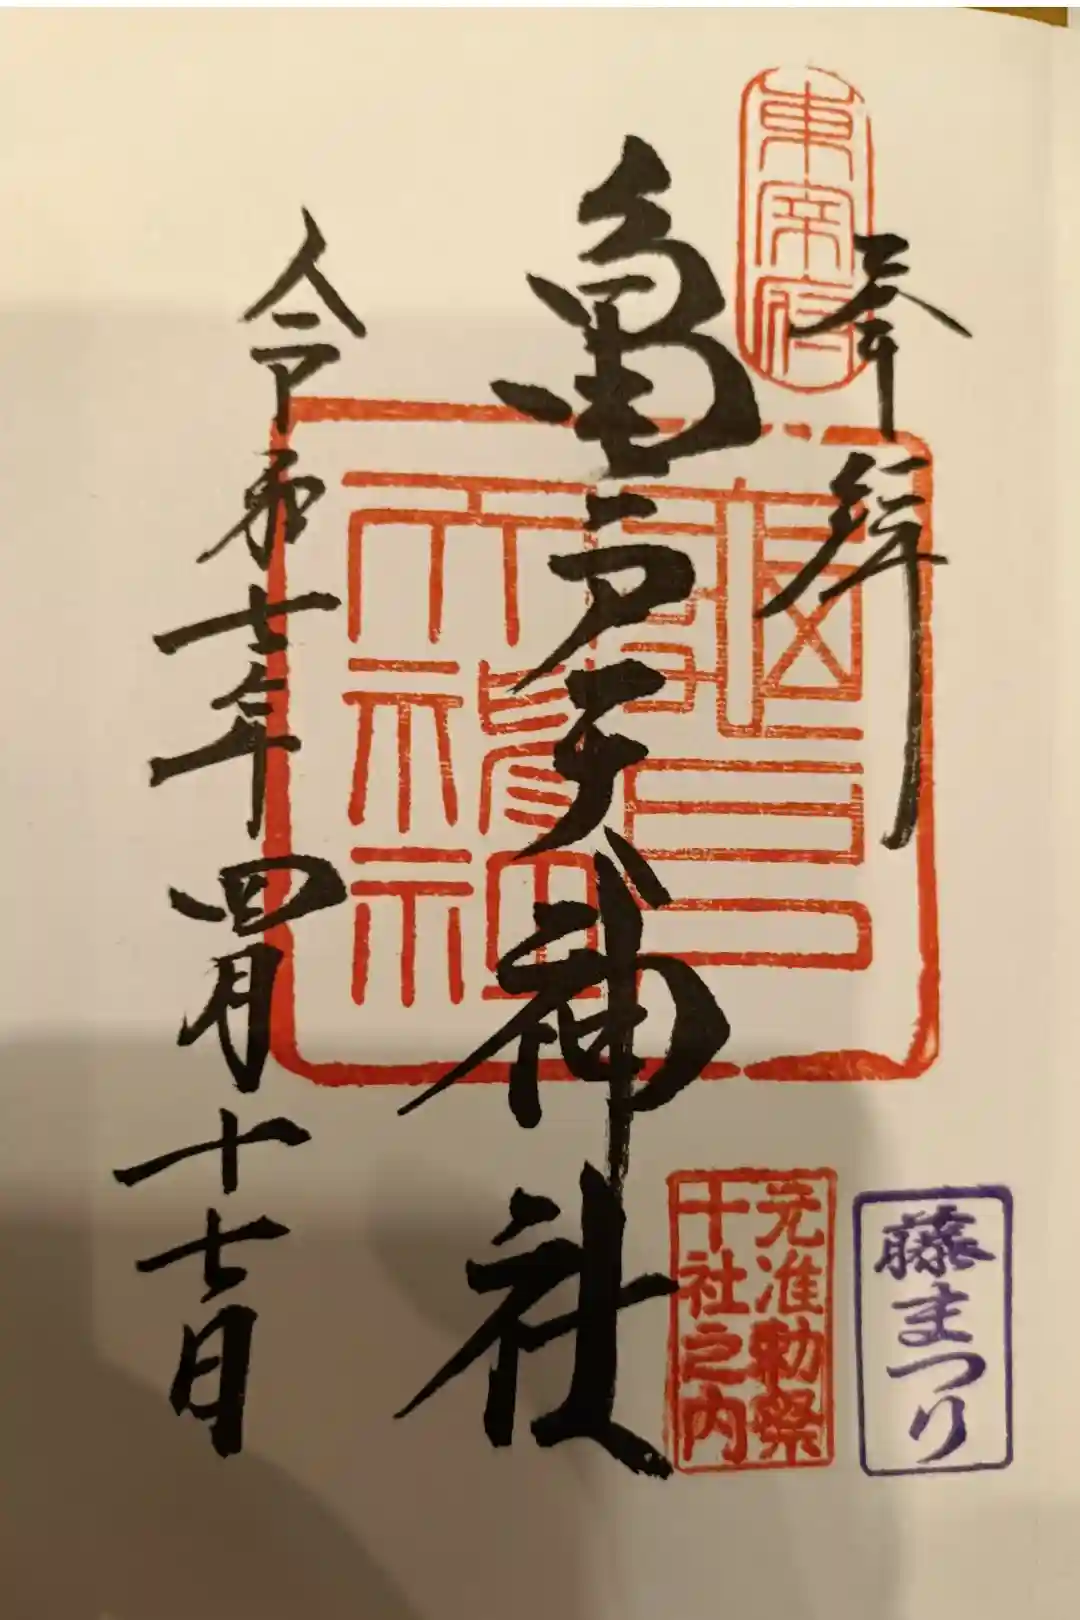 奉拝
亀戸天神社
令和七年四月十七日
東宰府
天満宮
亀戸
天神社
元准勅祭
十社之内
藤まつり